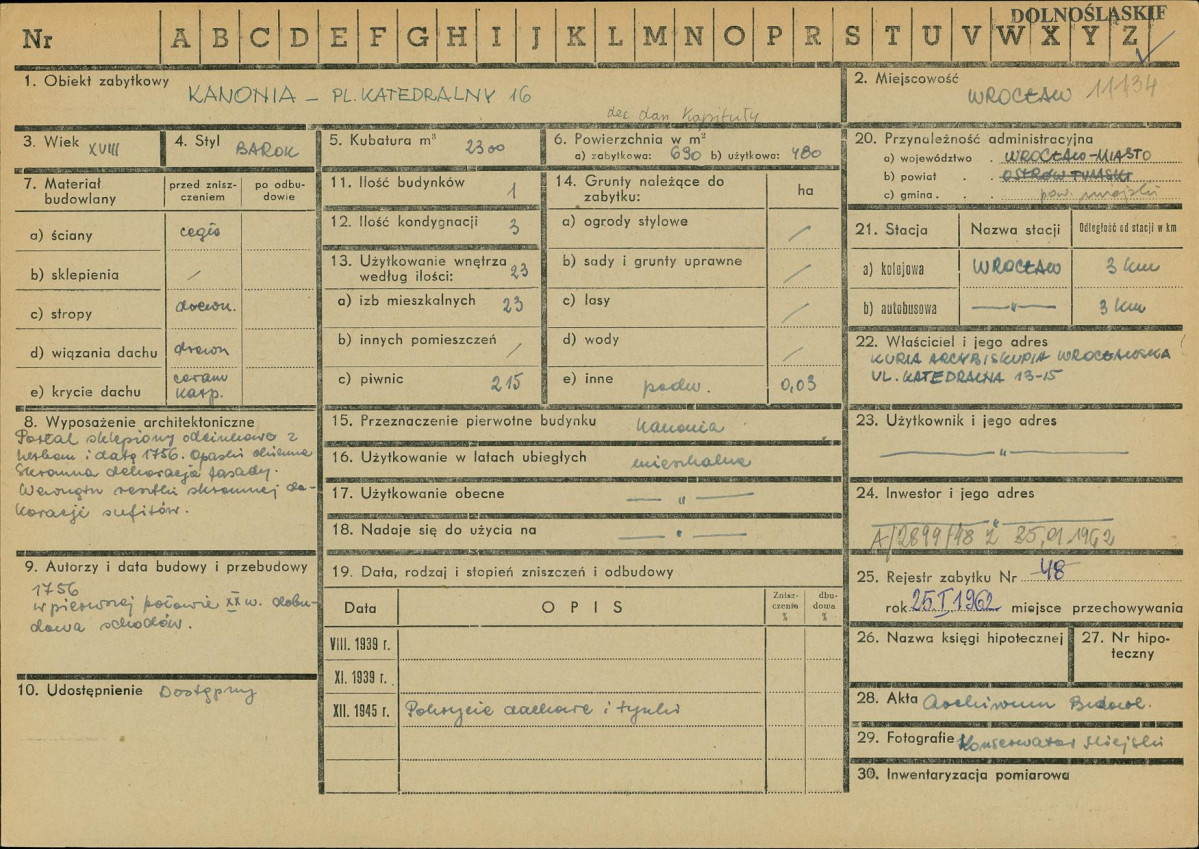 DOLNOŚLĄSKIE
Nr A B C D E F G H I J K L M N O P R S T U V W X Y Z
1. Obiekt zabytkowy
KANONIA – PL. KATEDRALNY 16
dec dan Kapituły
2. Miejscowość
WROCŁAW 11134
3. Wiek XVIII
4. Styl BAROK
5. Kubatura m³ 2300
6. Powierzchnia w m²
a) zabytkowa: 690 b) użytkowa: 480
20. Przynależność administracyjna
a) województwo . WROCŁAW-MIASTO
b) powiat . . OSTRÓW TUMSKI
c) gmina . . . pow. miejski
7. Materiał budowlany
przed zniszczeniem
po odbudowie
a) ściany cegła
b) sklepienia /
c) stropy drewn.
d) wiązania dachu drewn
e) krycie dachu ceram karp.
11. Ilość budynków 1
12. Ilość kondygnacji 3
13. Użytkowanie wnętrza według ilości: 23
a) izb mieszkalnych 23
b) innych pomieszczeń /
c) piwnic 215
14. Grunty należące do zabytku:
ha
a) ogrody stylowe /
b) sady i grunty uprawne /
c) lasy /
d) wody /
e) inne podw. 0,03
21. Stacja
Nazwa stacji
Odległość od stacji w km
a) kolejowa WROCŁAW 3 km
b) autobusowa —"— 3 km
22. Właściciel i jego adres
KURIA ARCYBISKUPIA WROCŁAWSKA
UL. KATEDRALNA 13-15
8. Wyposażenie architektoniczne
Portal sklepiony odcinkowo z
herbem i datą 1756. Opaski okienne
Skromna dekoracja fasady.
Wewnątrz resztki skromnej de-
koracji sufitów.
15. Przeznaczenie pierwotne budynku kanonia
16. Użytkowanie w latach ubiegłych mieszkalne
17. Użytkowanie obecne —"—
18. Nadaje się do użycia na —"—
23. Użytkownik i jego adres
—"—
24. Inwestor i jego adres
—"—
A/2899/48 z 25,01 1962
9. Autorzy i data budowy i przebudowy
1756
w pierwszej połowie XX w. dobu-
dowa schodów.
10. Udostępnienie Dostępny
19. Data, rodzaj i stopień zniszczeń i odbudowy
Data
OPIS
Zniszczenia %
dbudowa %
VIII. 1939 r.
XI. 1939 r.
XII. 1945 r. Pokrycie dachowe i tynki
25. Rejestr zabytku Nr 48
rok 25 I 1962 miejsce przechowywania
26. Nazwa księgi hipotecznej
27. Nr hipoteczny
28. Akta Archiwum Budowl.
29. Fotografie Konserwator Miejski
30. Inwentaryzacja pomiarowa